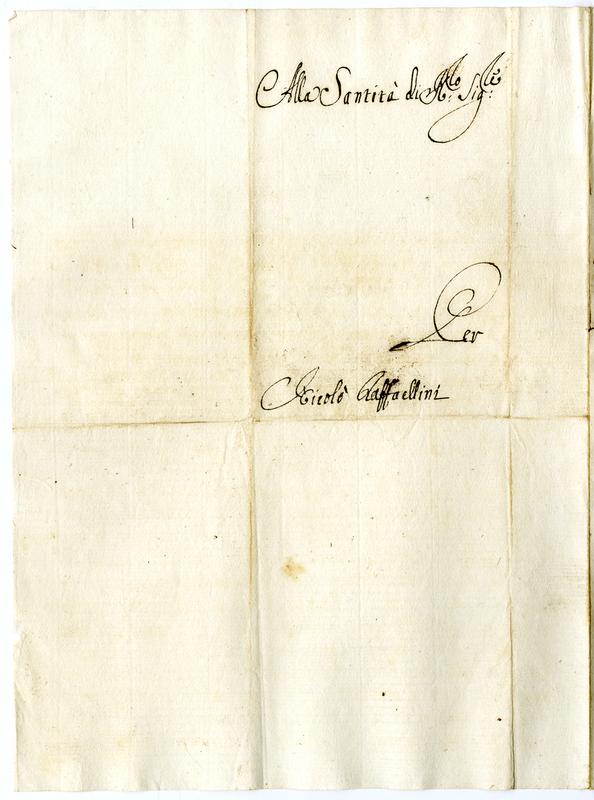 Alla Santità di N.ro Sig.re
Per
Nicolò Raffaellini